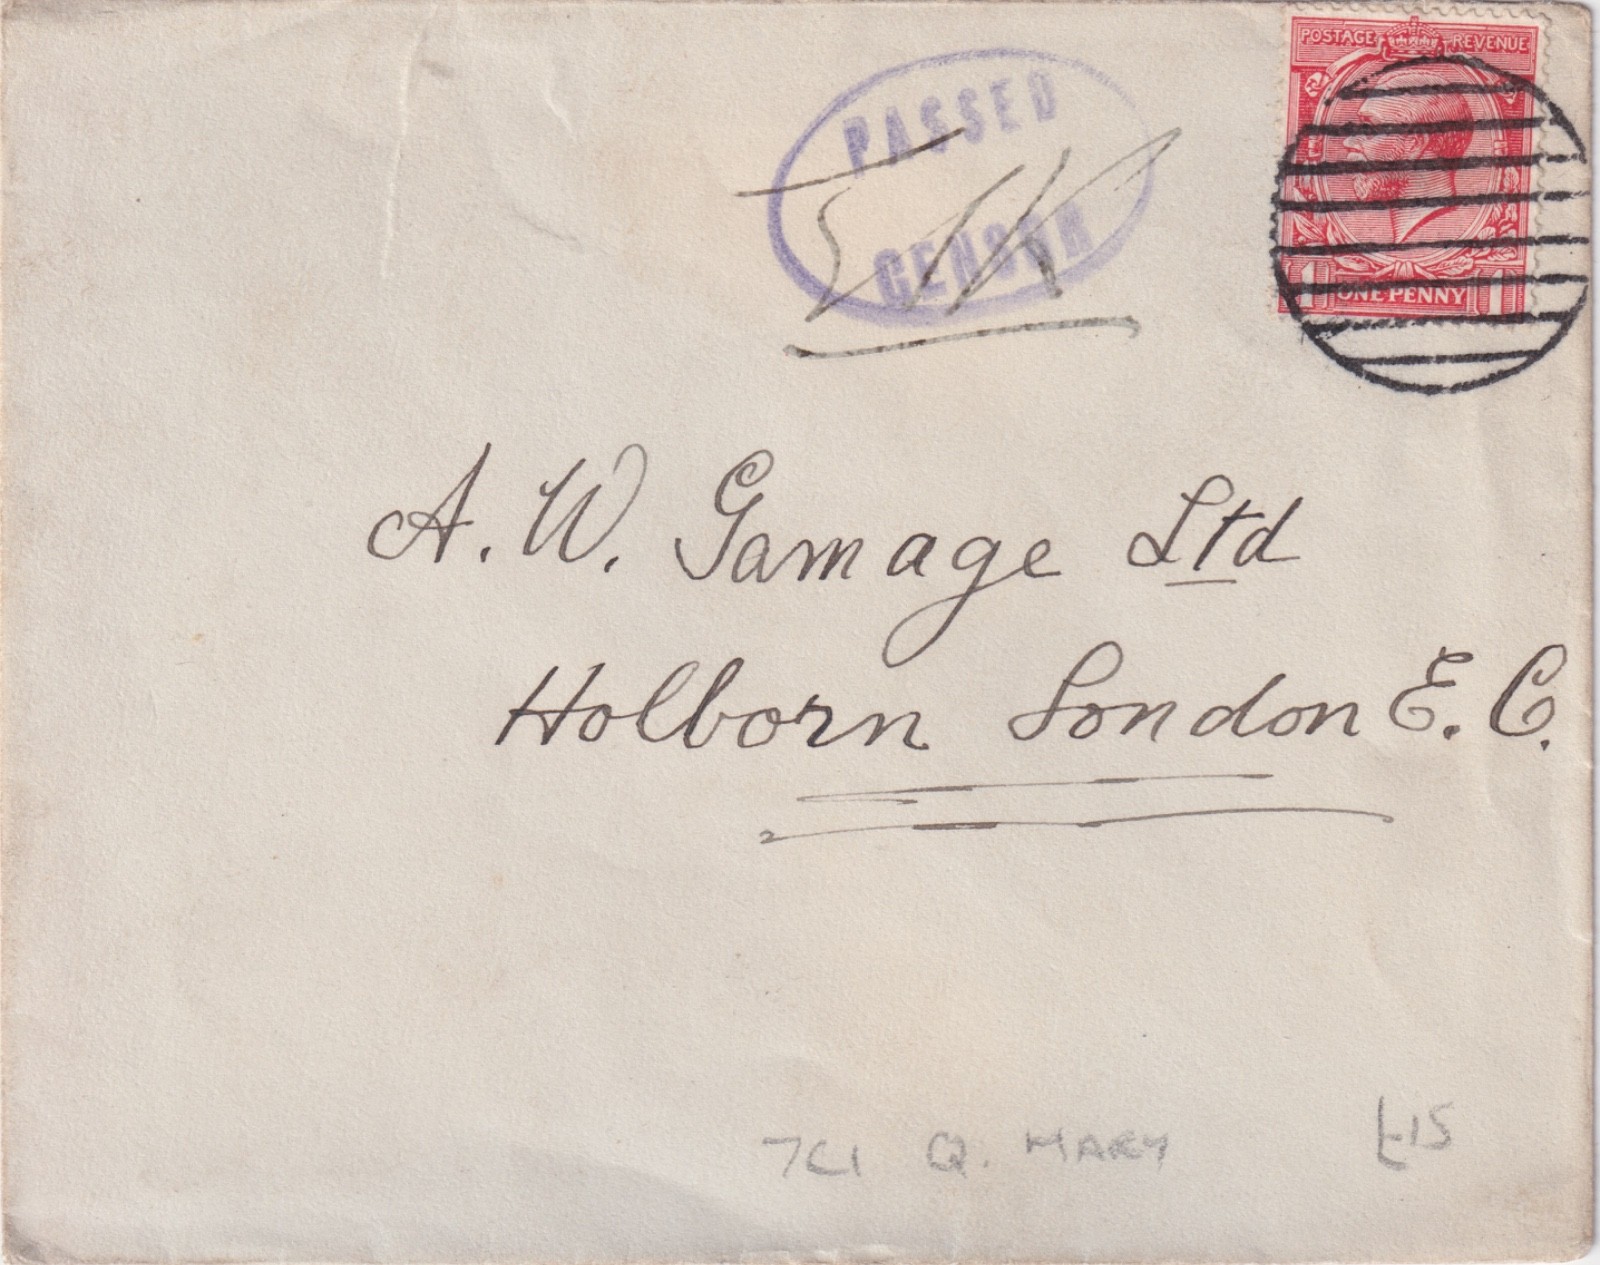 POSTAGE REVENUE
PASSED
CENSOR
1 ONE PENNY 1
A. W. Gamage Ltd
Holborn London E. C.
7C1 Q. MARY £15